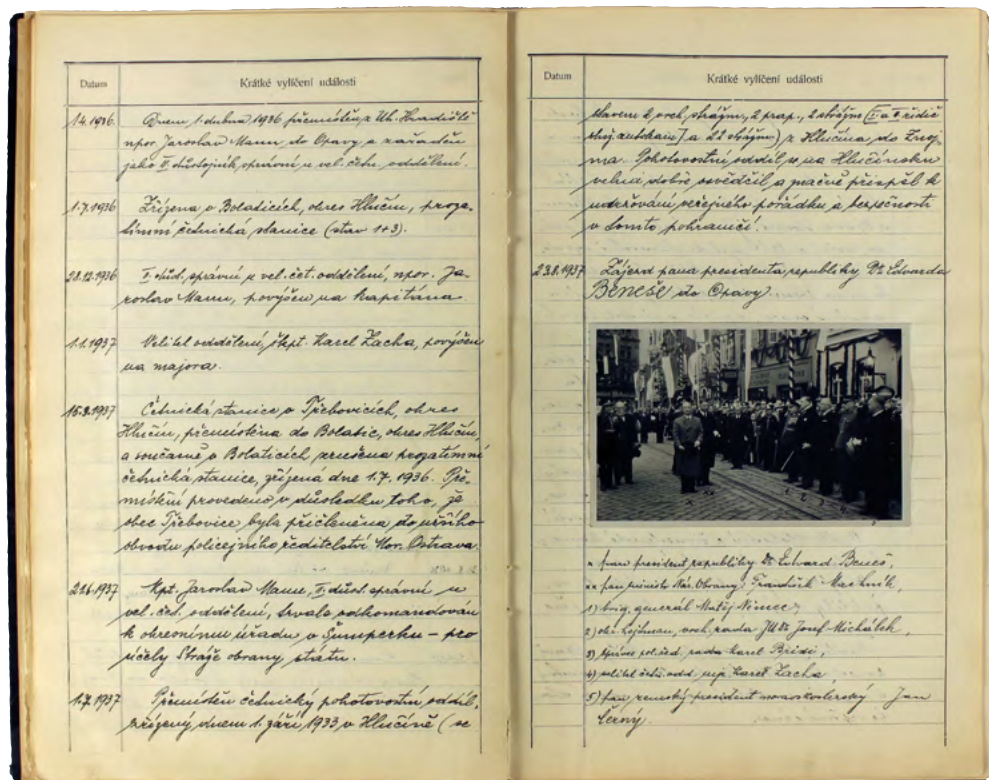 Datum Krátké vylíčení události
1.4.1936 Dnem 1. dubna 1936 přemístěn z Uh. Hradiště
npor. Jaroslav Mann do Opavy a zařaděn
jako II. důstojník správní u vel. četn. oddělení.
1.7.1936 Zřízena v Bolaticích, okres Hlučín, proza-
tímní četnická stanice (stav 1+3).
28.12.1936 II. důst. správní u vel. čet. oddělení, npor. Ja-
roslav Mann, povýšen na kapitána.
1.1.1937 Velitel oddělení, škpt. Karel Zacha, povýšen
na majora.
15.3.1937 Četnická stanice v Třebovicích, okres
Hlučín, přemístěna do Bolatic, okres Hlučín,
a současně v Bolaticích zrušena prozatímní
četnická stanice, zřízená dne 1.7.1936. Pře-
místění provedeno v důsledku toho, že
obec Třebovice byla přičleněna do
obvodu policejního ředitelství Mor. Ostrava.
21.6.1937 Kpt. Jaroslav Mann, II. důst. správní u
vel. čet. oddělení, trvale odkomandován
k okresnímu úřadu v Šumperku – pro
účely Stráže obrany státu.
1.7.1937 Přemístěn četnický pohotovostní oddíl,
zřízený dnem 1. září 1933 v Hlučíně (se
Datum Krátké vylíčení události
stavem 2 vrch. strážm., 2 prap., 2 strážm. řidič
a 22 strážm.) z Hlučína do Znoj-
ma. Pohotovostní oddíl se na Hlučínsku
velmi dobře osvědčil a značně přispěl k
udržování veřejného pořádku a bezpečnosti
v tomto pohraničí.
23.8.1937 Zájezd pana presidenta republiky Dr Edvarda
Beneše do Opavy.
x xx 1 2 3 4 5
x pan president republiky Dr Edvard Beneš,
xx pan ministr Nár. Obrany: František Machník,
1) brig. generál Matěj Němec,
2) okr. hejtman, vrch. rada JUDr Josef Michálek,
3) správce pol. řed. rada Karel
4) velitel četn. odd. mjr. Karel Zacha,
5) pan zemský president moravskoslezský Jan
Černý.